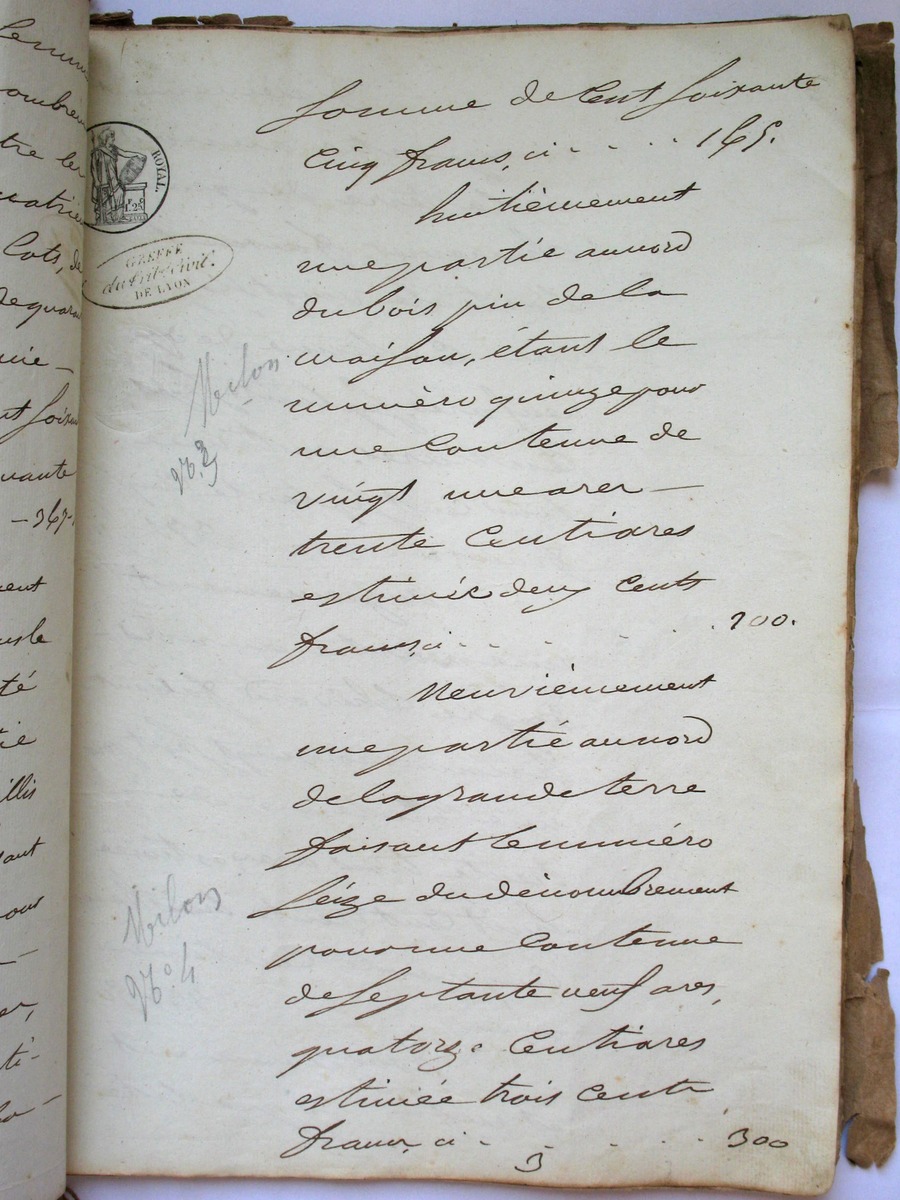 somme de Cent soixante
Cinq francs, ci - - - - 165.
huitièmement
une partie au nord
du bois pin de la
maison, étant le
numèro quinze pour
une Contenue de
vingt une ares —
trente Centiares
estimée deux Cents
francs, ci - - - - - 200.
Neuvièmement
une partié au nord
de la grande terre
faisant le numéro
séize du dénombrement
pour une Contenue
de septante neuf ares,
quatorze Centiares
estimée trois Cents
francs, ci - - - - - 300
3
ROYAL.
GREFFE
du Trib. Civil.
DE LYON
Milon
N° 3
Milon
N° 4
ombre
tre les
Lots, de
nt soixan
uante
- 367 -
ent
té
tie
illis
sant
our
er,
ti-